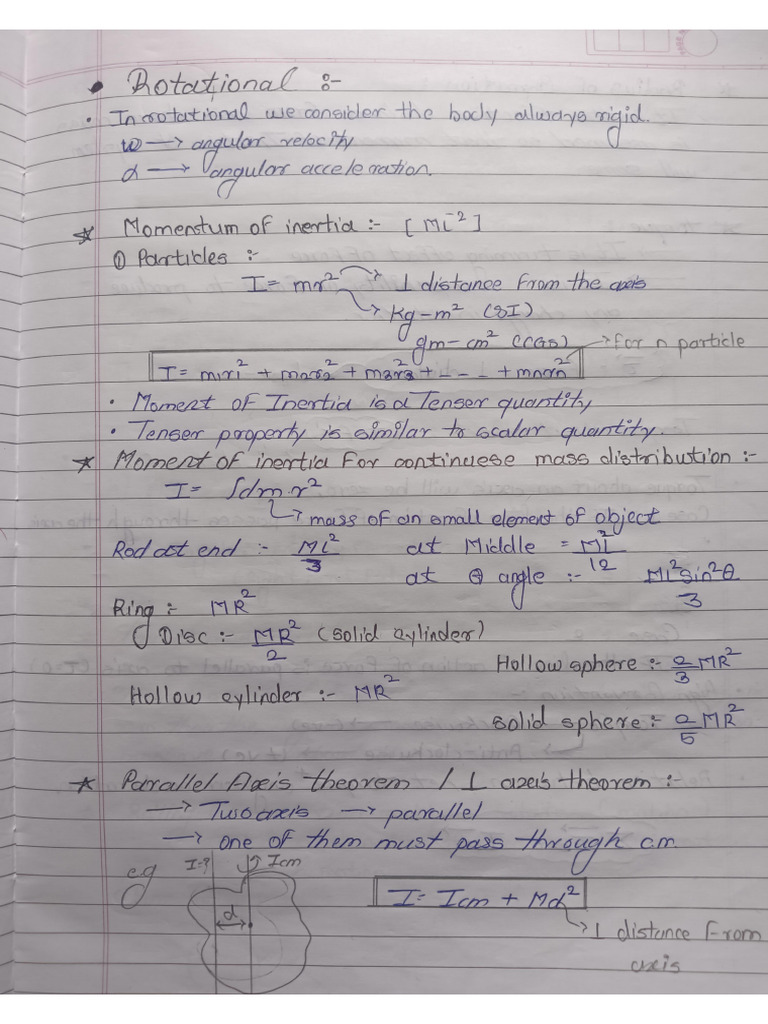 • Rotational :-
• In rotational we consider the body always rigid.
w → angular velocity
α → angular acceleration.
* Momentum of inertia :- [ML⁻²]
① Particles :-
I = mr² → ⊥ distance from the axis
→ kg-m² (SI)
gm-cm² (CGS) → for n particle
I = m1r1² + m2r2² + m3r3² + - - - + mnrn²
• Moment of Inertia is a Tenser quantity
• Tenser property is similar to scalar quantity.
* Moment of inertia For continuese mass distribution :-
I = ∫dm.r²
↳ mass of an small element of object
Rod at end :- ML²/3 at Middle = ML²/12
at θ angle :- ML²sin²θ/3
Ring :- MR²
Disc :- MR²/2 (solid cylinder)
Hollow sphere :- 2/3 MR²
Hollow cylinder :- MR²
solid sphere :- 2/5 MR²
* Parallel Axis theorem / ⊥ axis theorem :-
→ Two axis → parallel
→ one of them must pass through c.m.
e.g I=? Icm
d
I = Icm + Md²
↳ ⊥ distance From
axis